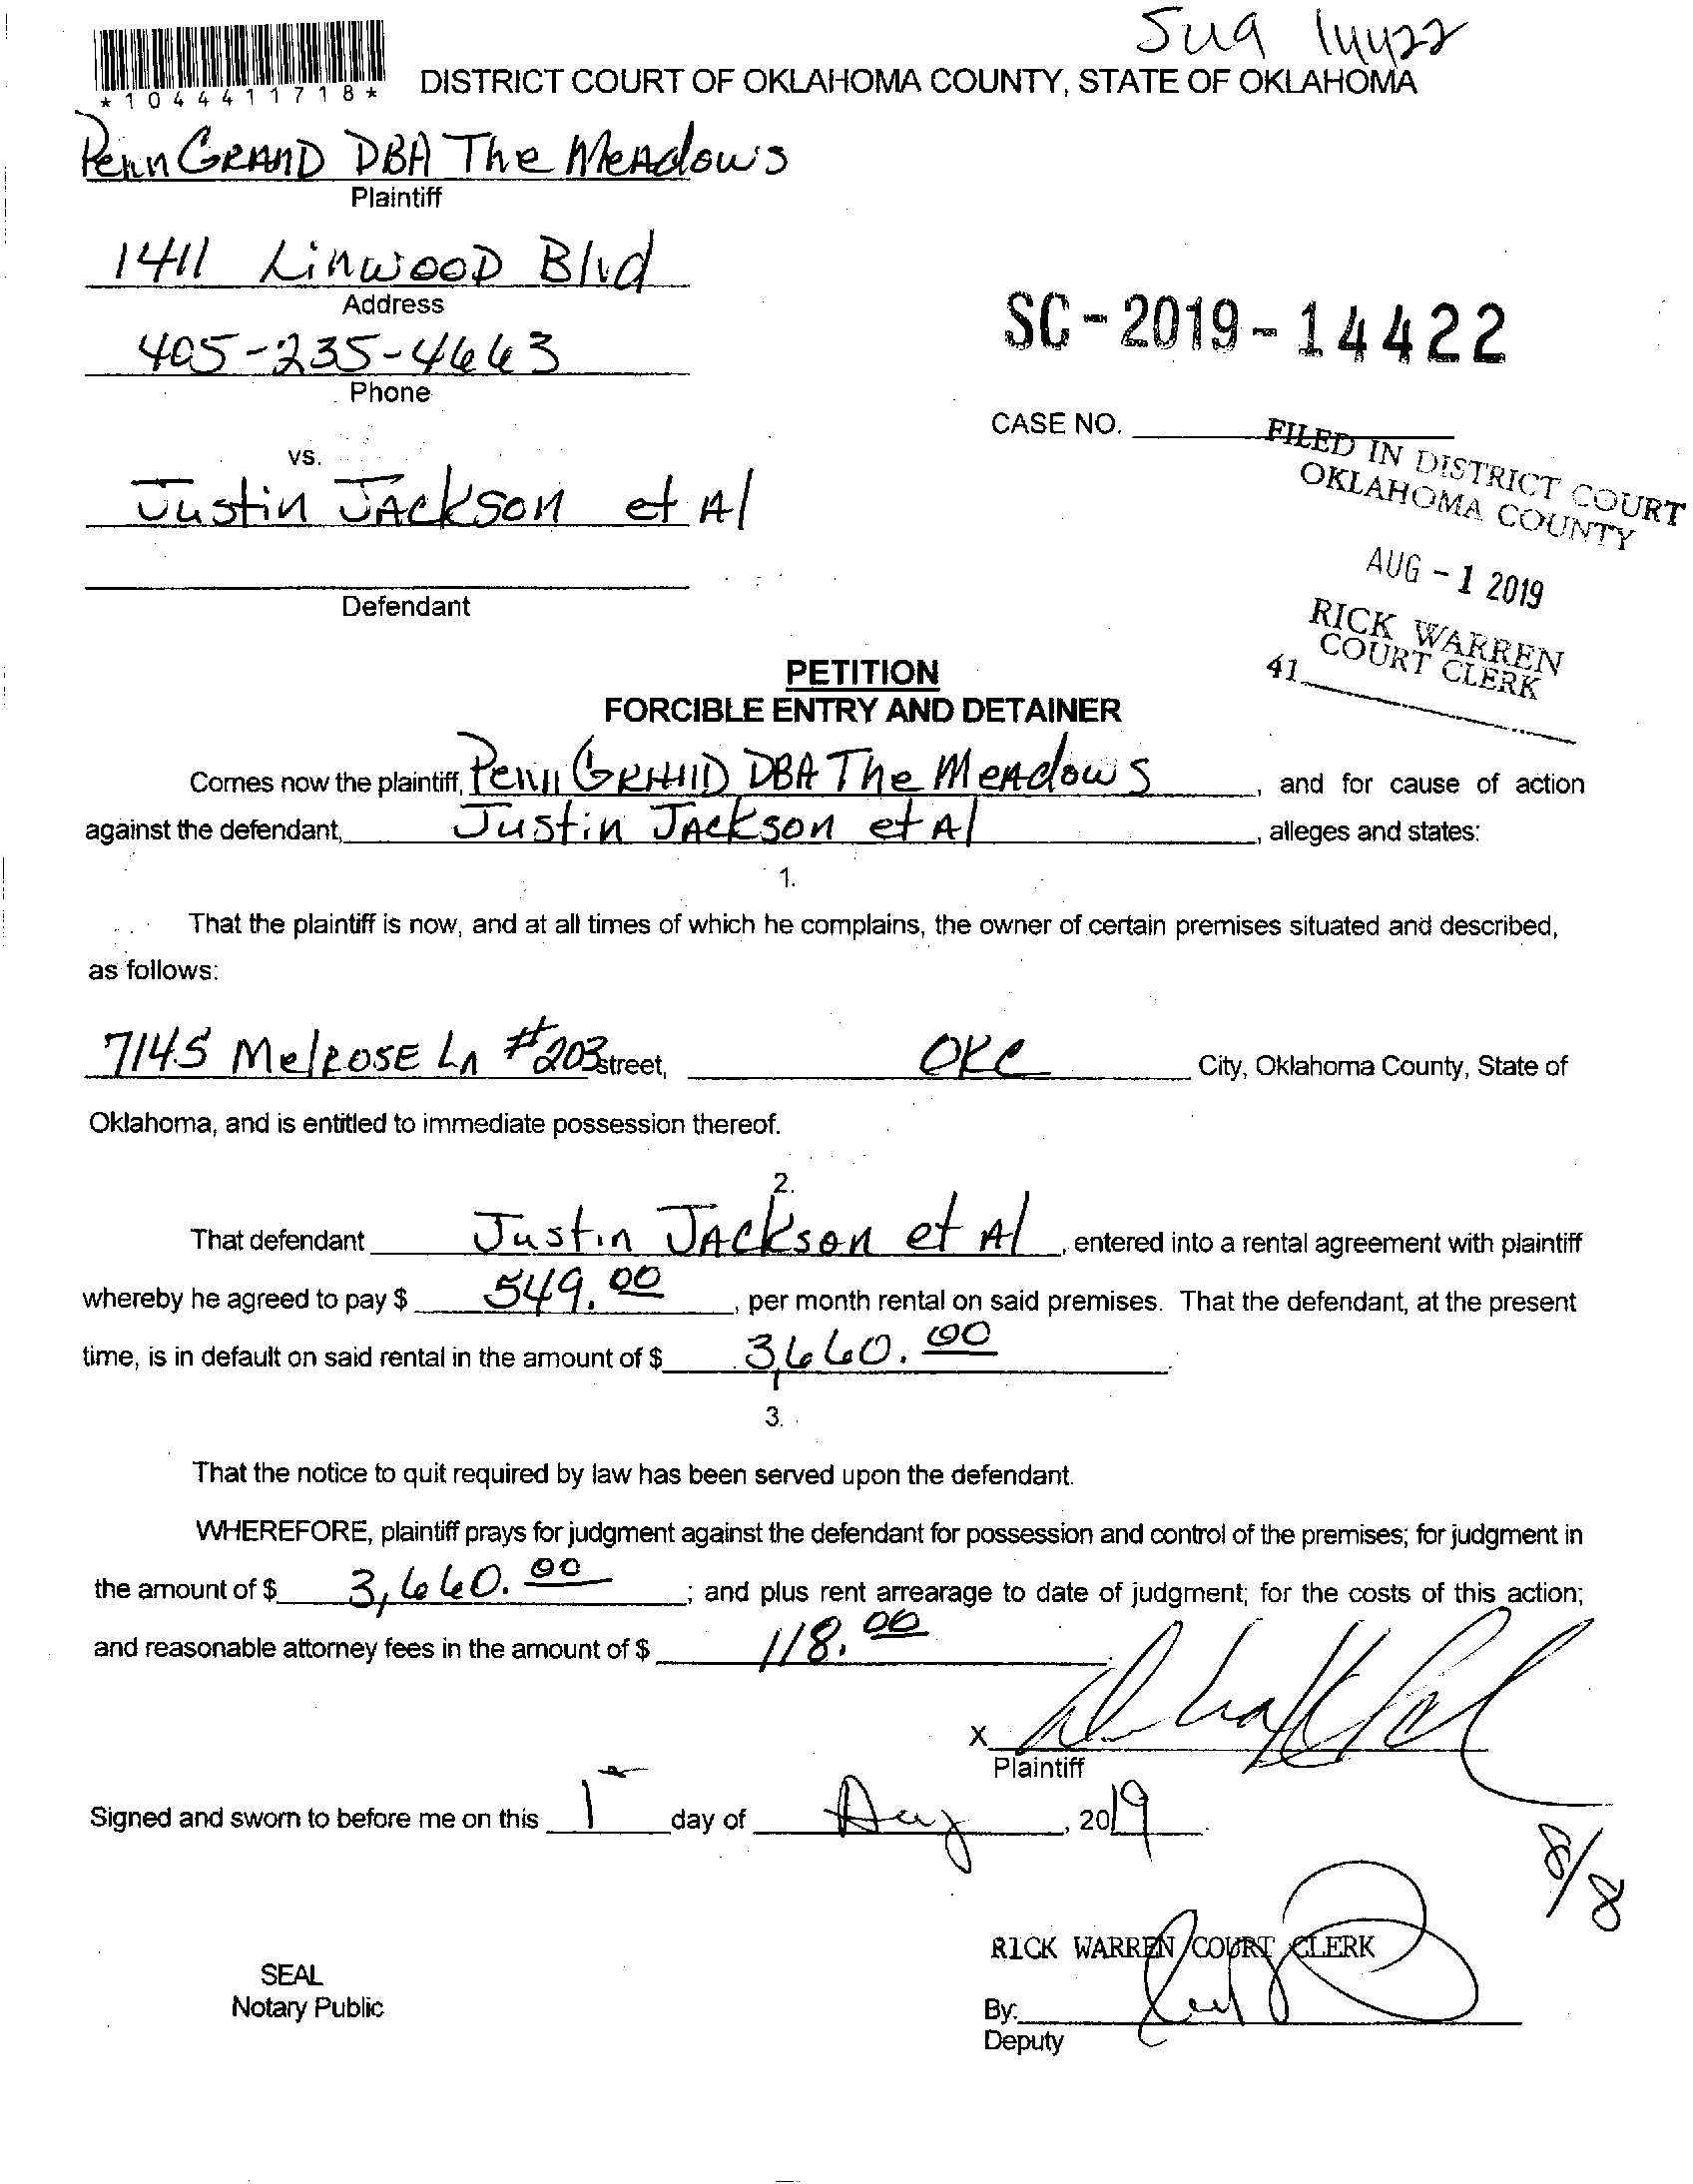 Sug 14422
*1044411718*
DISTRICT COURT OF OKLAHOMA COUNTY, STATE OF OKLAHOMA
Penn GRAND DBA The Meadows
Plaintiff
1411 Linwood Blvd
Address
405-235-4663
Phone
SC-2019-14422
CASE NO.
FILED IN DISTRICT COURT
OKLAHOMA COUNTY
AUG - 1 2019
RICK WARREN
COURT CLERK
41
vs.
Justin Jackson et Al
Defendant
PETITION
FORCIBLE ENTRY AND DETAINER
Comes now the plaintiff, Penn GRAND DBA The Meadows, and for cause of action
against the defendant, Justin Jackson et Al, alleges and states:
1.
That the plaintiff is now, and at all times of which he complains, the owner of certain premises situated and described,
as follows:
7145 Melrose Ln #203 street, OKC City, Oklahoma County, State of
Oklahoma, and is entitled to immediate possession thereof.
2.
That defendant Justin Jackson et Al, entered into a rental agreement with plaintiff
whereby he agreed to pay $ 549.00, per month rental on said premises. That the defendant, at the present
time, is in default on said rental in the amount of $ 3,660.00.
3.
That the notice to quit required by law has been served upon the defendant.
WHEREFORE, plaintiff prays for judgment against the defendant for possession and control of the premises; for judgment in
the amount of $ 3,660.00; and plus rent arrearage to date of judgment; for the costs of this action;
and reasonable attorney fees in the amount of $ 118.00.
X
Plaintiff
Signed and sworn to before me on this 1st day of Aug, 2019.
8/8
RICK WARREN COURT CLERK
SEAL
Notary Public
By:
Deputy